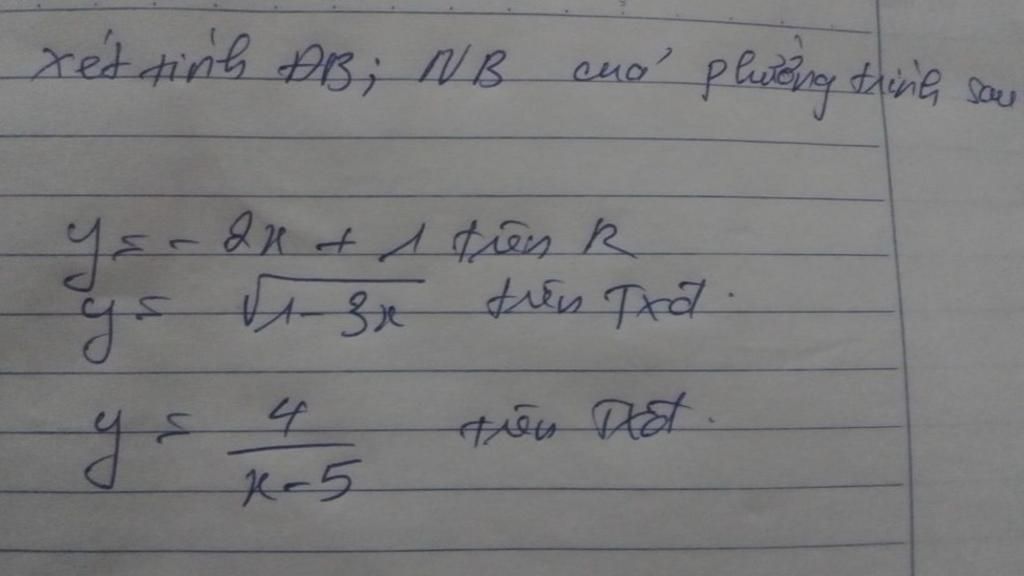 xét tính ĐB; NB của phưởng trình sau
y = - 2x + 1 trên R
y = √1-3x trên Txđ.
y = 4/x-5 trên Txđ.